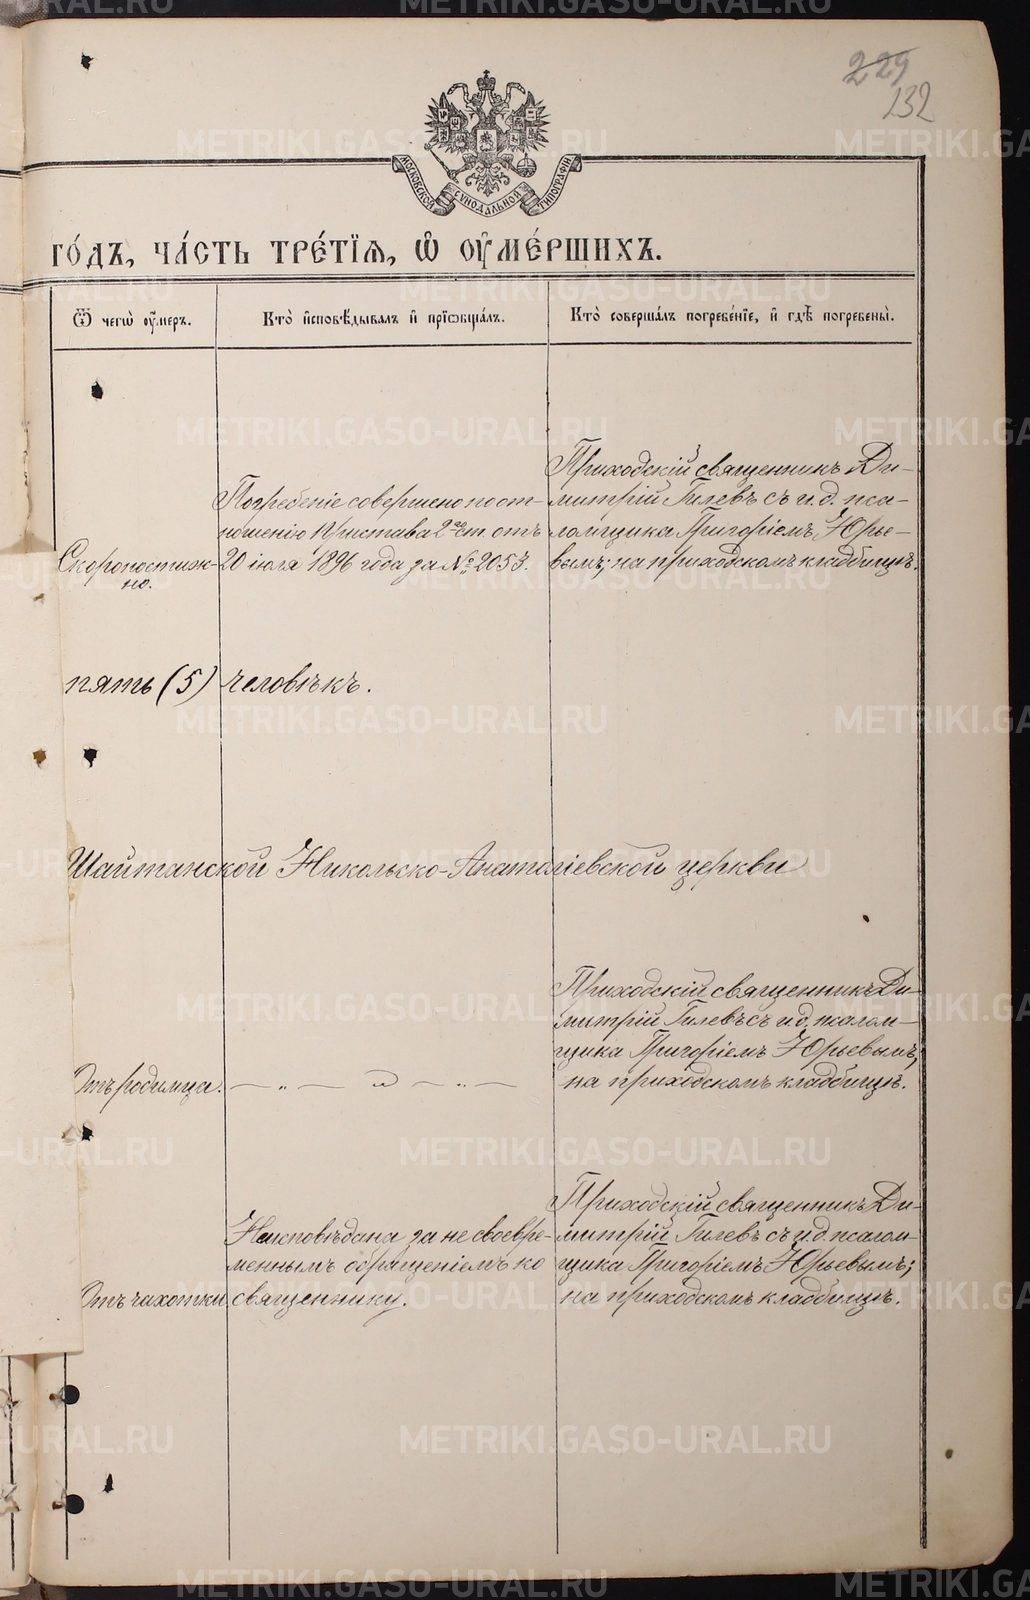 229
132
МОСКОВСКОЙ СѴНОДАЛЬНОЙ ТИПОГРАФІИ
го́дъ, ча́сть тре́тїѧ, ѡ҆ ᲂу҆ме́ршихъ.
Ѿ чегѡ̀ ᲂу҆́меръ.
Кто̀ и҆сповѣ́дывалъ и҆ прїѡбща́лъ.
Кто̀ соверша́лъ погребе́нїе, и҆ гдѣ̀ погребены̀.
Скоропостиж-
но.
Погребеніе совершено по от-
ношенію Пристава 2го ст. отъ
20 іюля 1896 года за № 2053.
Приходскій священникъ Ди-
митрій Гилевъ съ и.д. пса-
ломщика Григоріемъ Юрье-
вымъ; на приходскомъ кладбищѣ.
пять (5) человѣкъ.
Шайтанской Николько-Анатоліевской церкви
Отъ родимца.
— „ — „ — „ —
Приходскій священникъ Ди-
митрій Гилевъ съ и.д. псалом-
щика Григоріемъ Юрьевымъ;
на приходскомъ кладбищѣ.
Отъ чахотки
Неисповѣдана за не своевре-
меннымъ обращеніемъ ко
священнику.
Приходскій священникъ Ди-
митрій Гилевъ съ и.д. псалом-
щика Григоріемъ Юрьевымъ;
на приходскомъ кладбищѣ.
METRIKI.GASO-URAL.RU